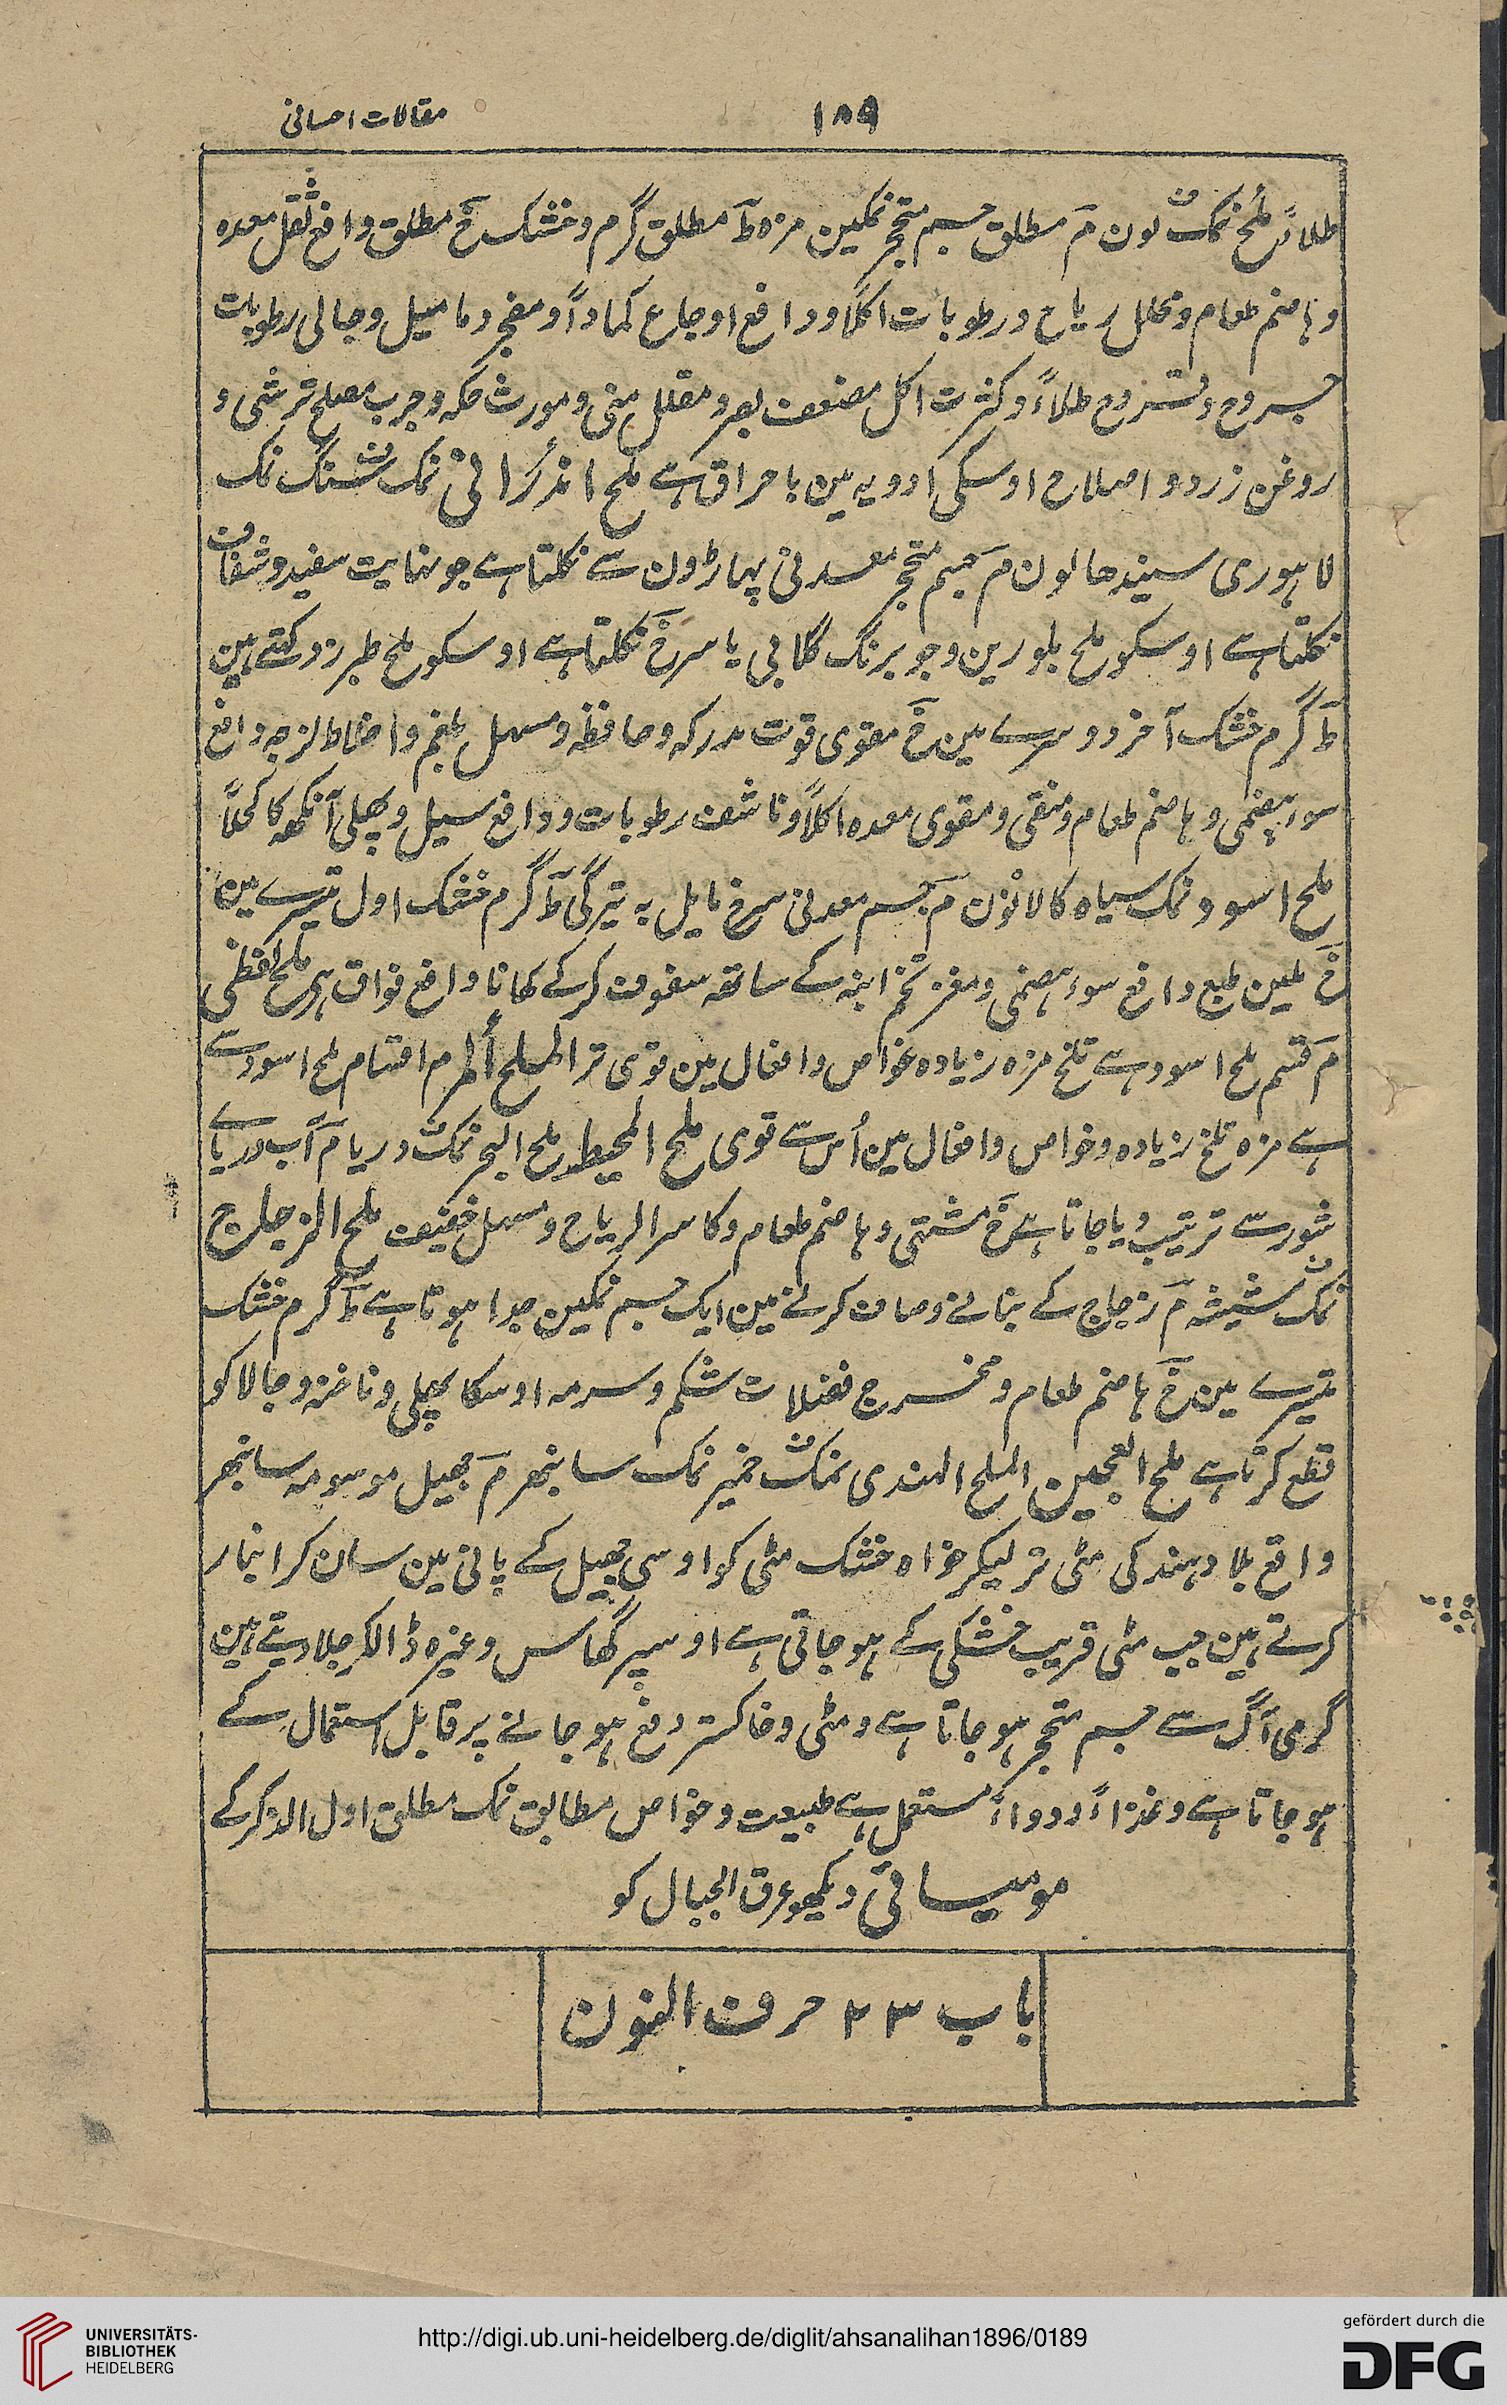 ۱۸۹
مقالات احسانی
طلاءً ملح نمک لون م مطلق جسم متحجر نمکین مزہ ط مطلق گرم و خشک خ مطلق دافع ثقل معدہ
و ہاضم طعام و محلل ریاح و رطوبات اکلاً و دافع اوجاع کماداً و مفجر دمامیل و جالی رطوبات
جروح و قروح طلاءً و کثرت اکل مضعف بصر و مقلل منی و مورث حکہ و جرب مصلح ترشی و
روغن زرد و اصلاح اوسکی ادویہ مین باحراق ہے ملح اندرانی نمک سنگ نمک
لاہوری سیندھا لون م جسم متحجر معدنی پہاڑون سے نکلتا ہے جو نہایت سفید و شفاف
نکلتا ہے اوسکو ملح بلورین و جو برنگ گلابی یا سرخ نکلتا ہے اوسکو ملح طبرزد کہتے ہین
ط گرم خشک آخر دوسرے مین خ مقوی قوت مدرکہ و حافظہ و مسہل بلغم و اخلاط لزجہ دافع
سوء ہضمی و ہاضم طعام و منقی و مقوی معدہ اکلاً و ناشف رطوبات و دافع سبل و پھلی آنکھہ کا کحلاً
ملح اسود نمک سیاہ کالا نون م جسم معدنی سرخ مایل بہ تیرگی ط گرم خشک اول تیسرے مین
خ ملین طبع دافع سوء ہضمی و مغز تخم انبہ کے ساتھہ سفوف کرکے کھانا دافع فواق ہی ملح نفطی
م قسم ملح اسود ہے تلخ مزہ زیادہ خواص و افعال مین قوی تر الملح المر م اقسام ملح اسود سے
ہے مزہ تلخ زیادہ و خواص و افعال مین اُس سے قوی ملح المحیط ملح البحر نمک دریا م آب دریاے
شور سے ترتیب دیا جاتا ہے خ مشتہی و ہاضم طعام و کاسر الریاح و مسہل خفیف ملح الزجاج
نمک شیشہ م زجاج کے بنانے و صاف کرنے مین ایک جسم نمکین جدا ہوتا ہے ط گرم خشک
تیسرے مین خ ہاضم طعام و مخرج فضلات شکم و سرمہ اوسکا پھلی و ناخنہ و جالا کو
قطع کرتا ہے ملح العجین الملح الہندی نمک خمیر نمک سانبھر م جھیل موسومہ سانبھر
واقع بلاد ہند کی مٹی تر لیکر خواہ خشک مٹی کو اوسی جھیل کے پانی مین سان کر انبار
کرتے ہین جب مٹی قریب خشکی کے ہو جاتی ہے اوسپر گھاس وغیرہ ڈالکر جلا دیتے ہین
گرمی آگ سے جسم متحجر ہو جاتا ہے و مٹی و خاکستر دفع ہو جانے پر قابل استعمال کے
ہو جاتا ہے و غذاءً و دواءً مستعمل ہے طبیعت و خواص مطابق نمک مطلق اول الذکر کے
مومیائی دیکھو عرق الجبال کو
باب ۲۳ حرف النون
UNIVERSITÄTS-
BIBLIOTHEK
HEIDELBERG
http://digi.ub.uni-heidelberg.de/diglit/ahsanalihan1896/0189
gefördert durch die
DFG